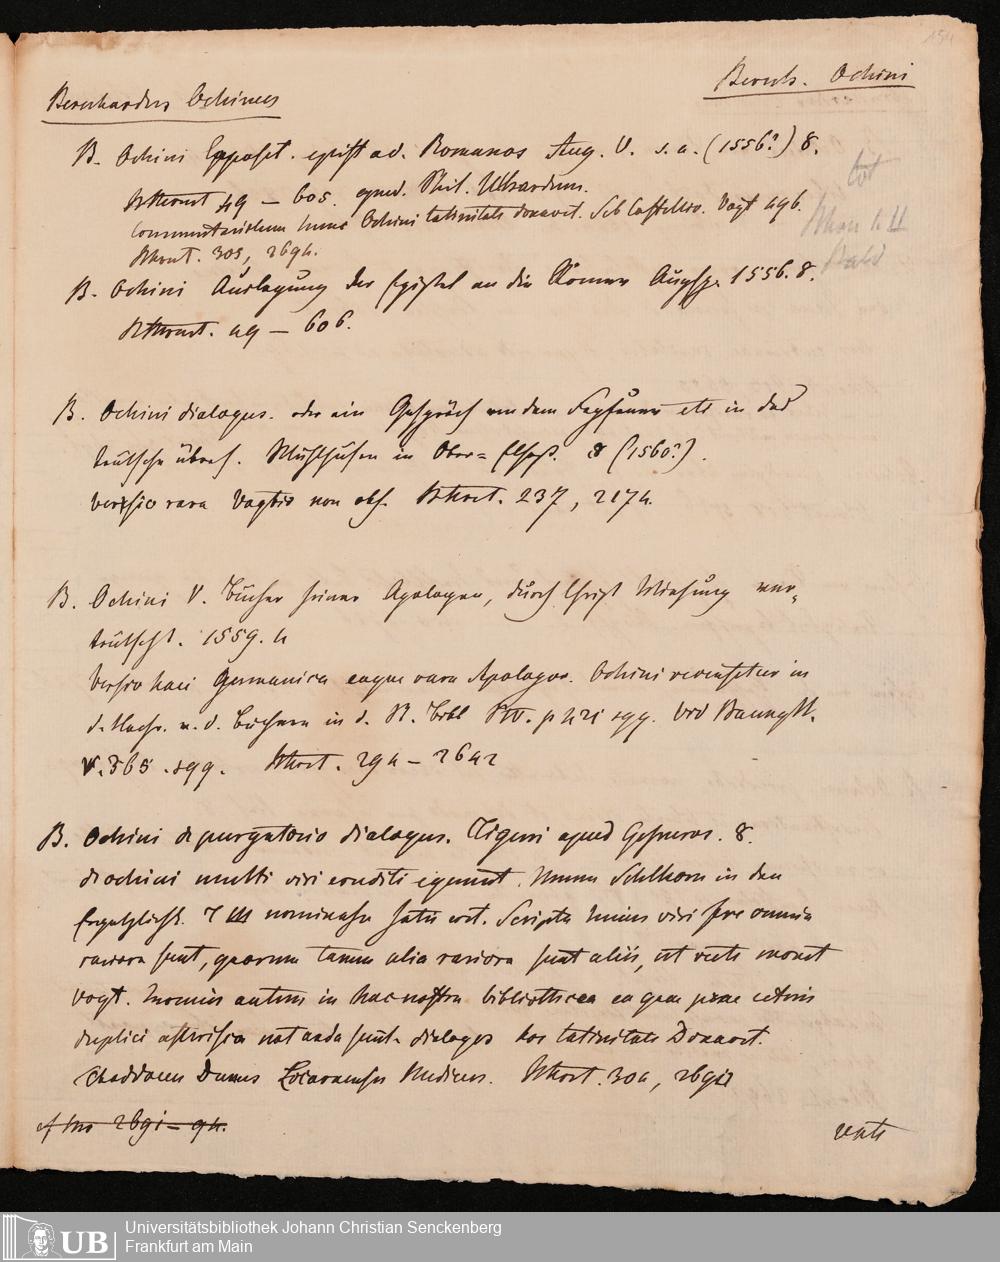 154
Bernhardus Ochinus
Bernh. Ochini
B. Ochini Exposit. epist ad. Romanos Aug. V. s. a. (1556?) 8.
49 — 605. apud. Phil. Ulhardum.
Commentariolum hunc Ochini latinitate donavit. Seb Castellio. Vogt 496.
305, 2694.
B. Ochini Auslegung der Epistel an die Römer Augsp. 1556. 8.
49 — 606.
B. Ochini dialogus. oder ein Gespräch von dem Fegfeuer etc in das
teutsche übers. Mühlhusen in Ober= Elsaß. 8 (1560?).
versio rara Vogtio non obs. 237, 2174.
B. Ochini V. Bücher seiner Apologen, durch Christ Wirsung ver=
teutscht. 1559. 4
Versio haec Germanica eaque rara Apologor. Ochini recensetur in
d. Nachr. v. d. Büchern in d. St. Bibl p 421 sqq. vid Baumgtt.
V. 365. sqq. 294 — 2642
B. Ochini de purgatorio dialogus. Tiguri apud Gesneros. 8.
de ochini multi viri eruditi egerunt. Unum Schelhorn in den
Ergetzlichk. T III nominasse satis erit. Scripta huius viri fere omnia
rariora sunt, quorum tamen alia rariora sunt aliis, ut recte monet
Vogt. autem in hac nostra bibliotheca ea quae prae ceteris
duplici notanda sunt. dialogos hos latinitate Donavit.
Thaddaeus Dunus Locarnensis Medicus. 304, 2691
2691 — 94.
verte
Universitätsbibliothek Johann Christian Senckenberg
Frankfurt am Main
UB